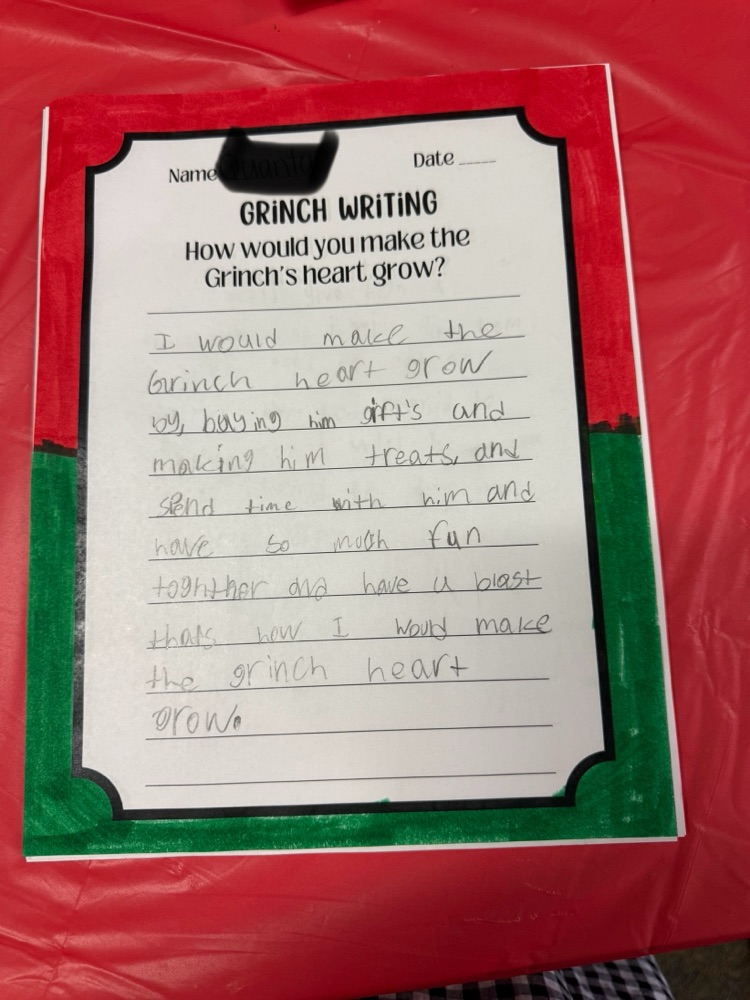 Name
Date
GRINCH WRITING
How would you make the
Grinch's heart grow?
I would make the
Grinch heart grow
by, buying him gift's and
making him treats, and
spend time with him and
have so moth fun
toghther and have a blast
thats how I would make
the grinch heart
grow.